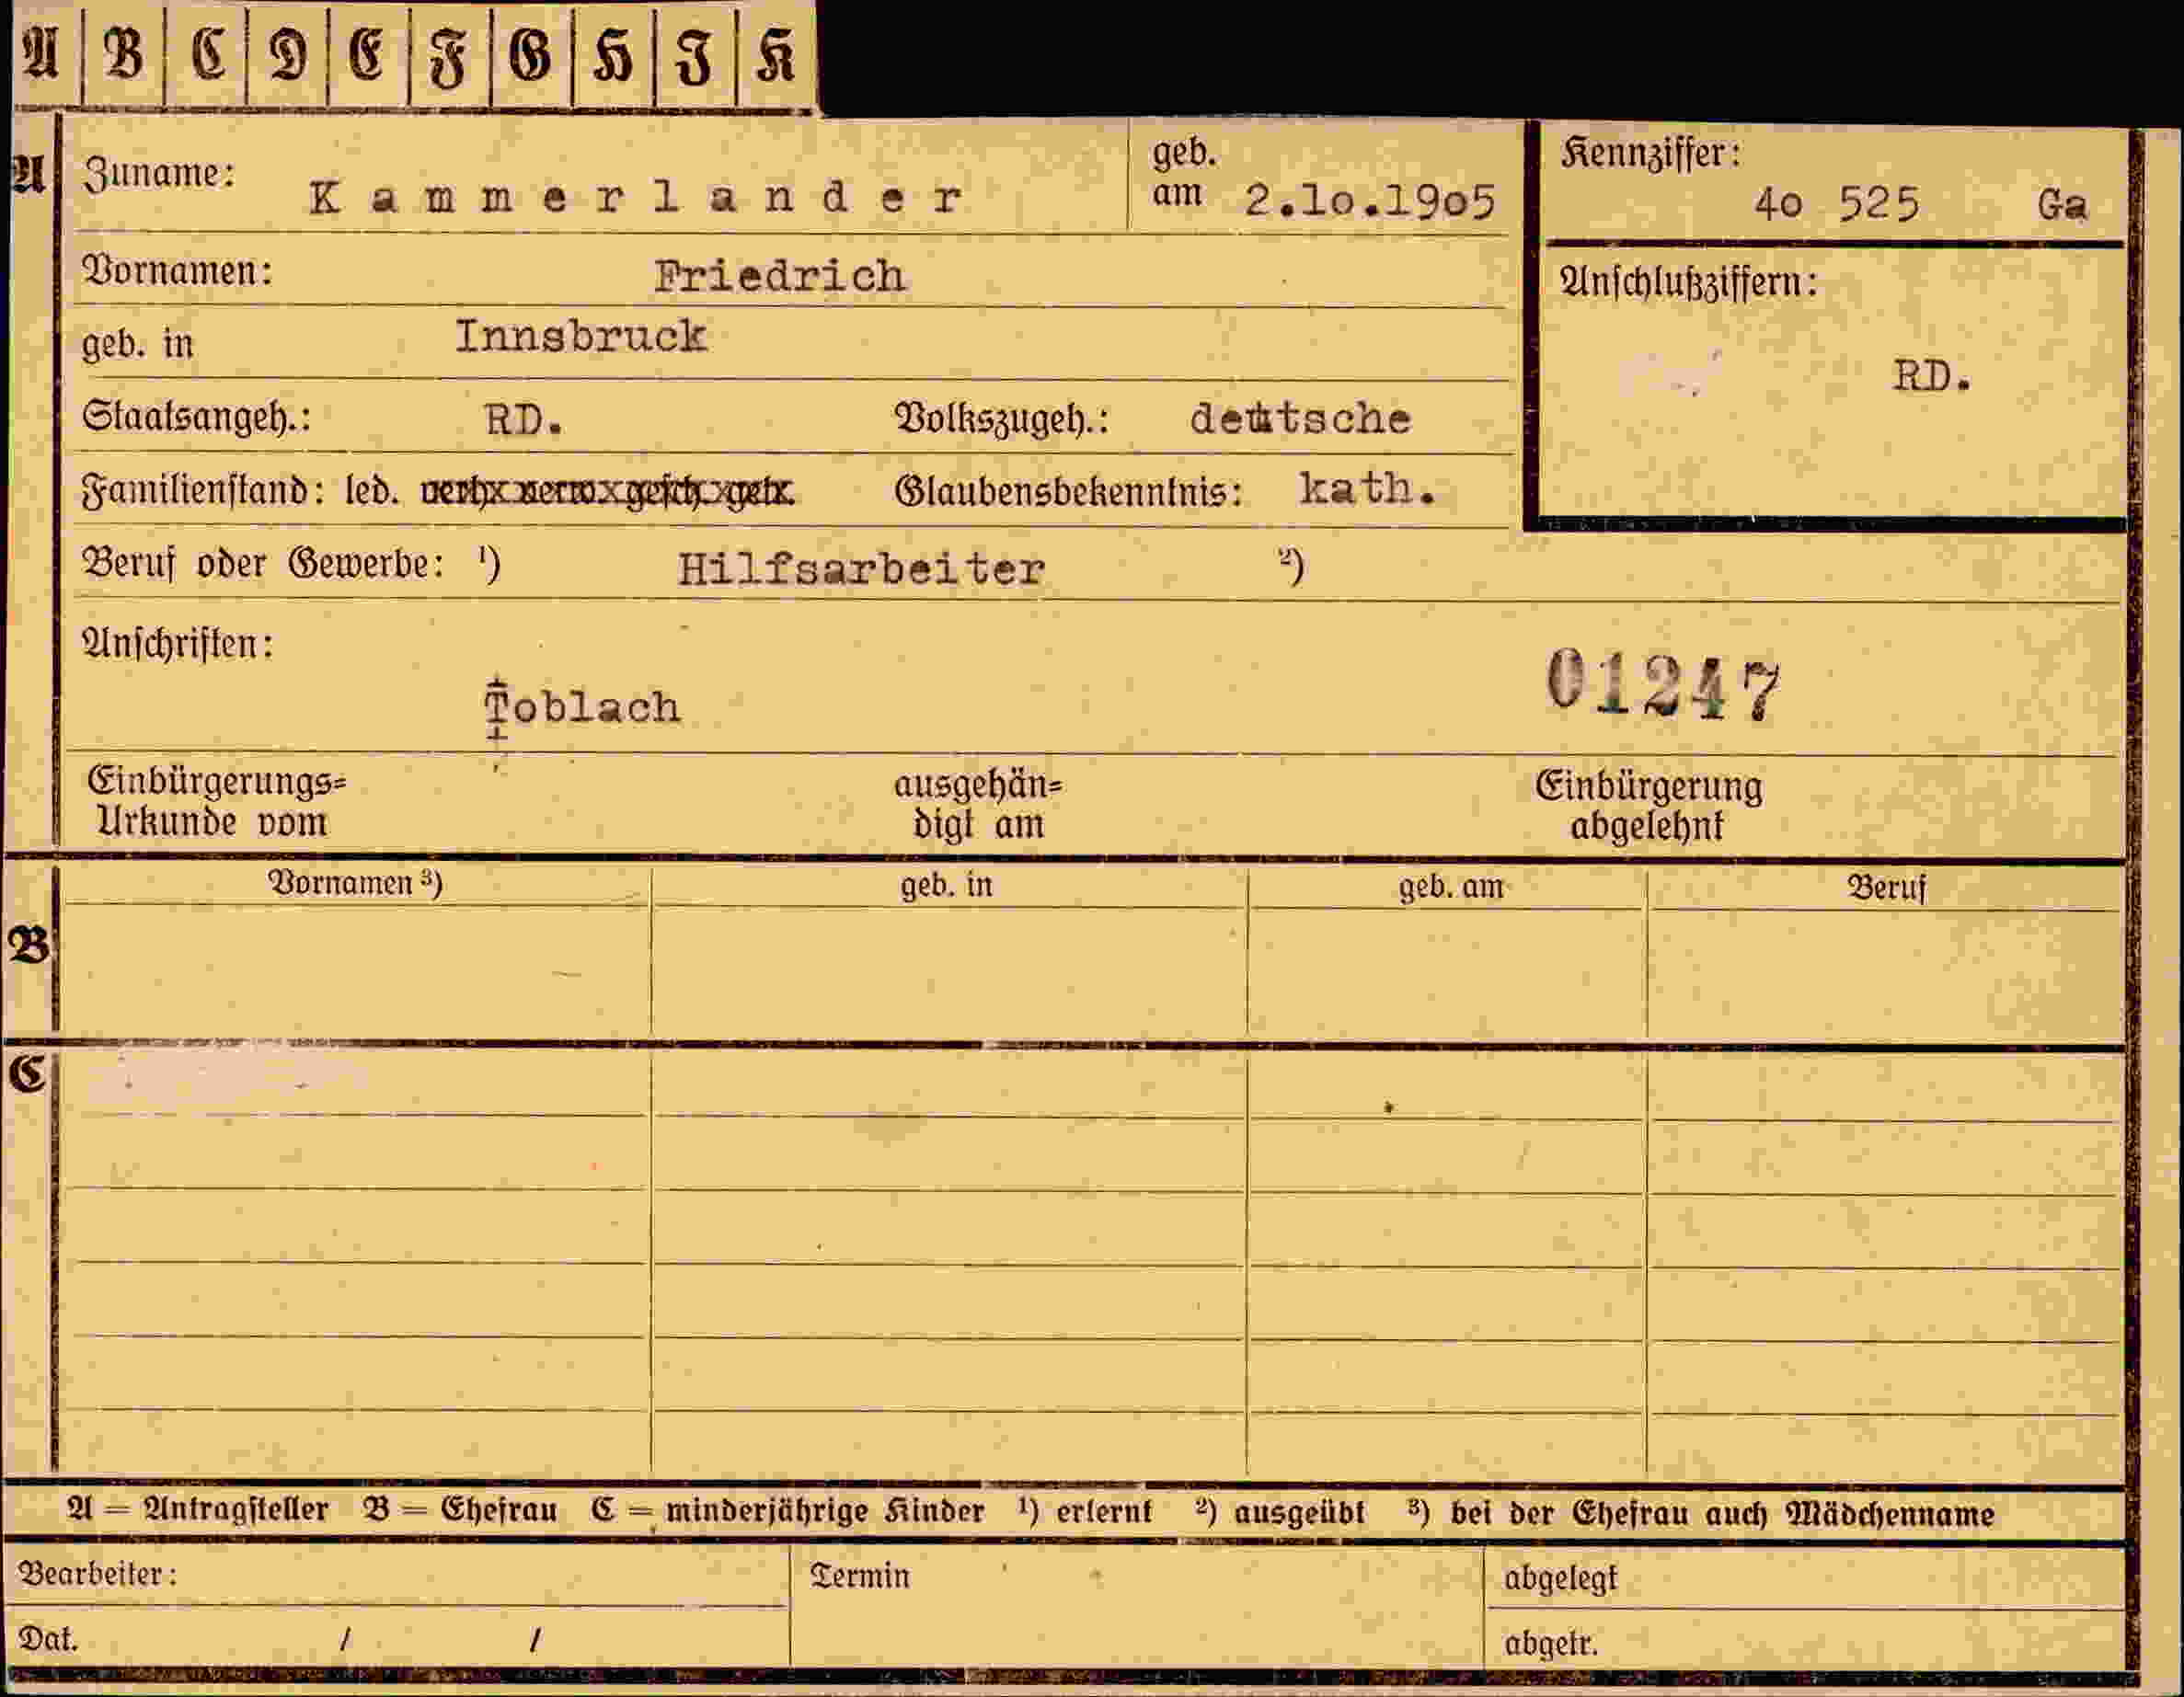 A B C D E F G H J K
A Zuname: Kammerlander geb. am 2.10.1905 Kennziffer: 40 525 Ga
Vornamen: Friedrich Anschlußziffern:
geb. in Innsbruck RD.
Staatsangeh.: RD. Volkszugeh.: deutsche
Familienstand: led. verh. verw. gesch. getr. Glaubensbekenntnis: kath.
Beruf oder Gewerbe: ¹) Hilfsarbeiter ²)
Anschriften:
Toblach 01247
Einbürgerungs= ausgehän= Einbürgerung
Urkunde vom digt am abgelehnt
Vornamen ³) geb. in geb. am Beruf
B
C
A = Antragsteller B = Ehefrau C = minderjährige Kinder ¹) erlernt ²) ausgeübt ³) bei der Ehefrau auch Mädchenname
Bearbeiter: Termin abgelegt
Dat. / / abgetr.